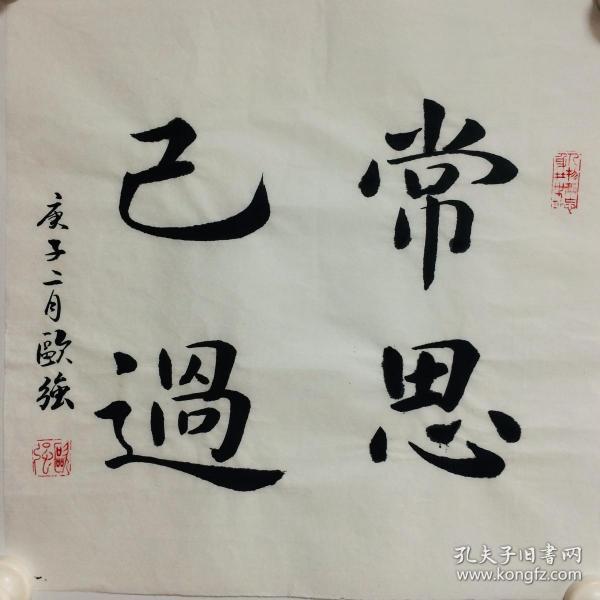 常思
己過
庚子二月歐強
歐強
孔夫子旧書网
www.kongfz.com